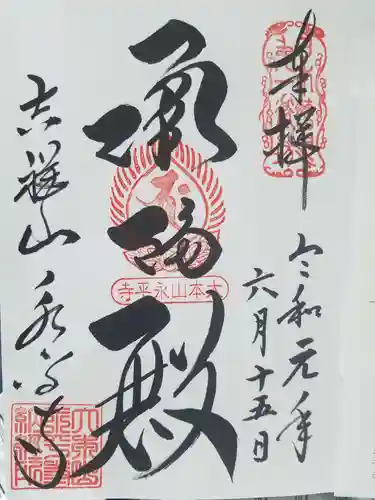 奉拝
令和元年
六月十五日
承陽殿
大本山永平寺
吉祥山永平寺